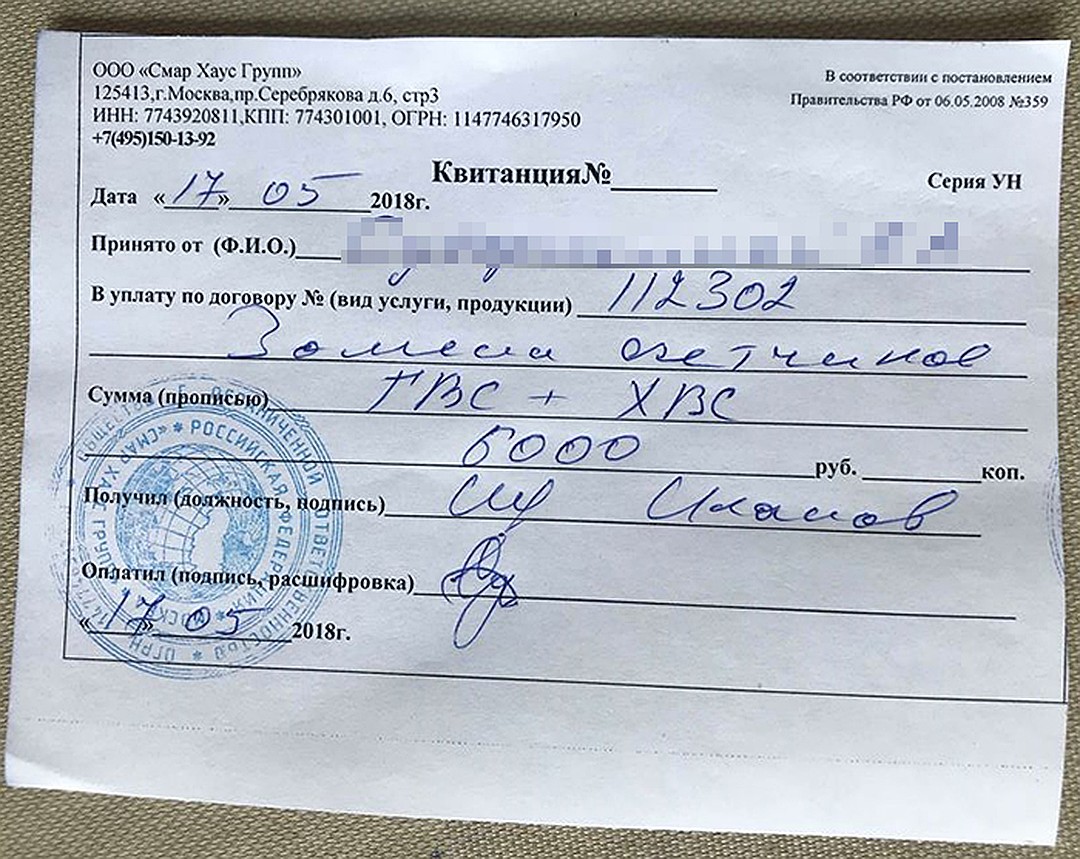 ООО «Смар Хаус Групп»
125413,г.Москва,пр.Серебрякова д.6, стр3
ИНН: 7743920811,КПП: 774301001, ОГРН: 1147746317950
+7(495)150-13-92
В соответствии с постановлением
Правительства РФ от 06.05.2008 №359
Квитанция№______
Серия УН
Дата «17» 05 2018г.
Принято от (Ф.И.О.)
В уплату по договору № (вид услуги, продукции) 112302
Замена счетчиков
Сумма (прописью) ГВС + ХВС
6000 руб. ______ коп.
Получил (должность, подпись)
Оплатил (подпись, расшифровка)
«17» 05 2018г.
ОБЩЕСТВО С ОГРАНИЧЕННОЙ ОТВЕТСТВЕННОСТЬЮ
РОССИЙСКАЯ ФЕДЕРАЦИЯ